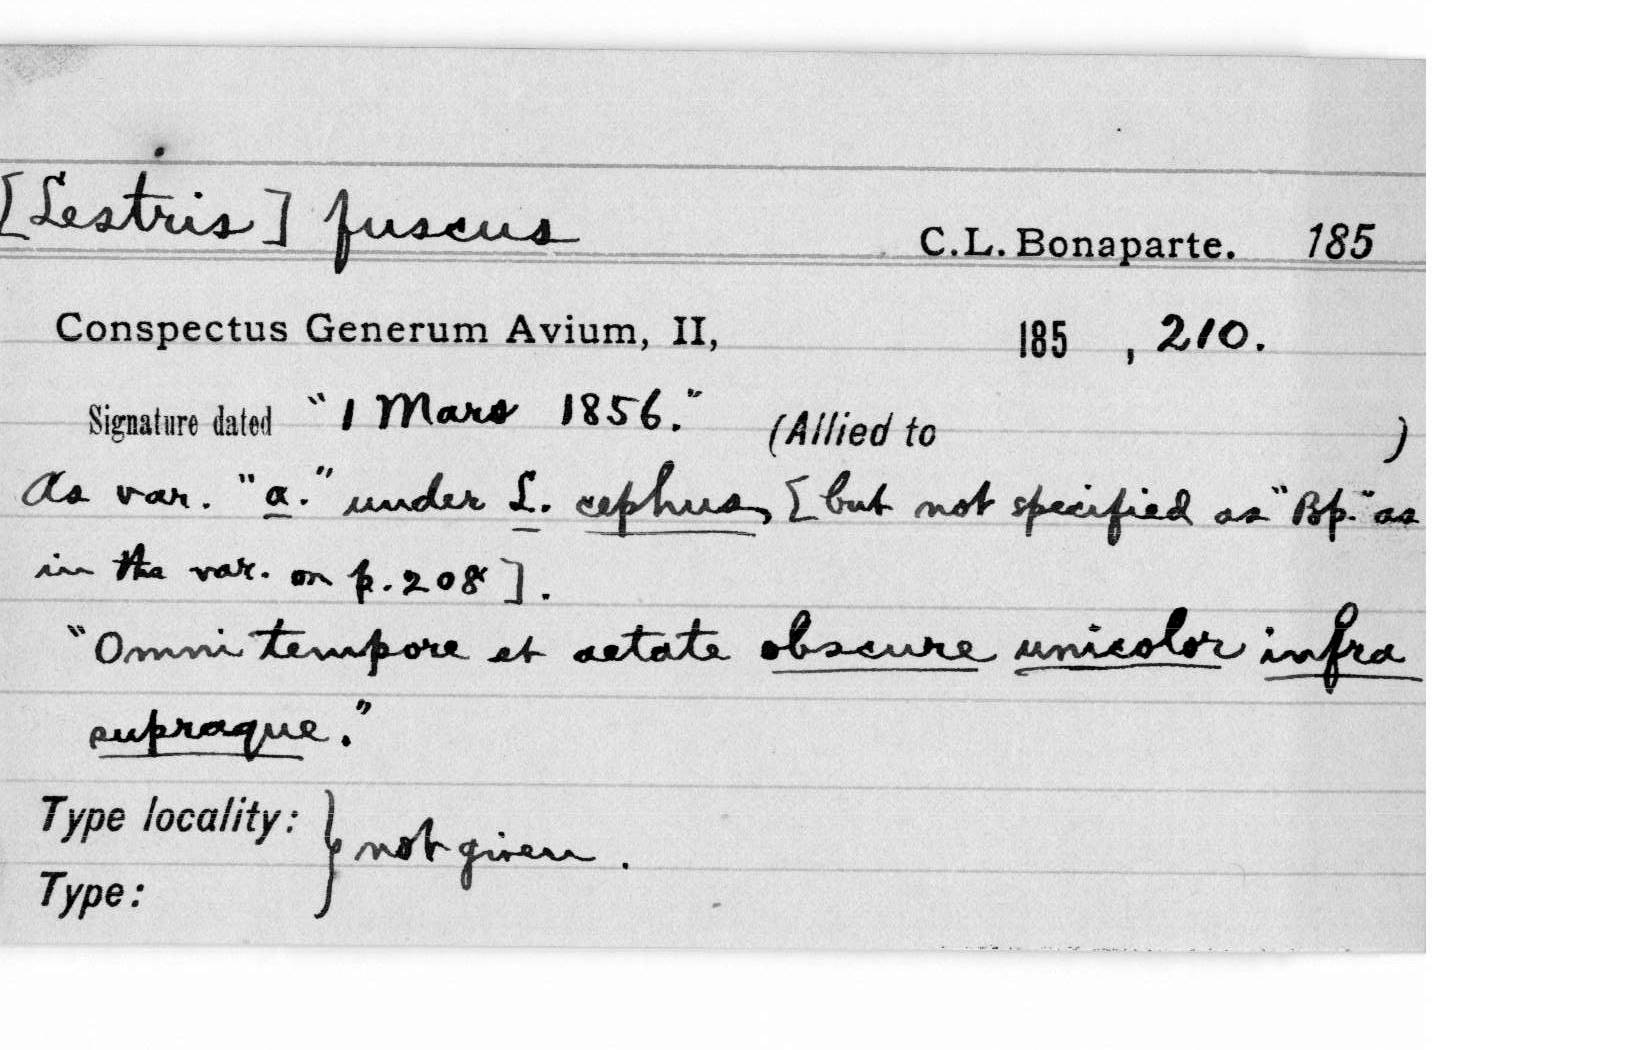 [Lestris] fuscus C.L. Bonaparte. 185
Conspectus Generum Avium, II, 185 , 210.
Signature dated "1 Mars 1856." (Allied to )
As var. "a." under L. cephus, [but not specified as "Bp." as
in the var. on p. 208].
"Omni tempore et aetate obscure unicolor infra
supraque."
Type locality: } not given.
Type: